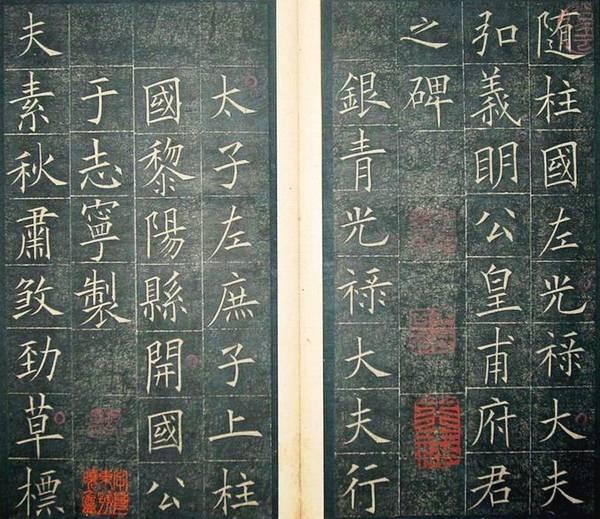 随柱國左光祿大夫
弘義明公皇甫府君
之碑
銀青光祿大夫行
太子左庶子上柱
國黎陽縣開國公
于志寧製
夫素秋肅煞勁草標